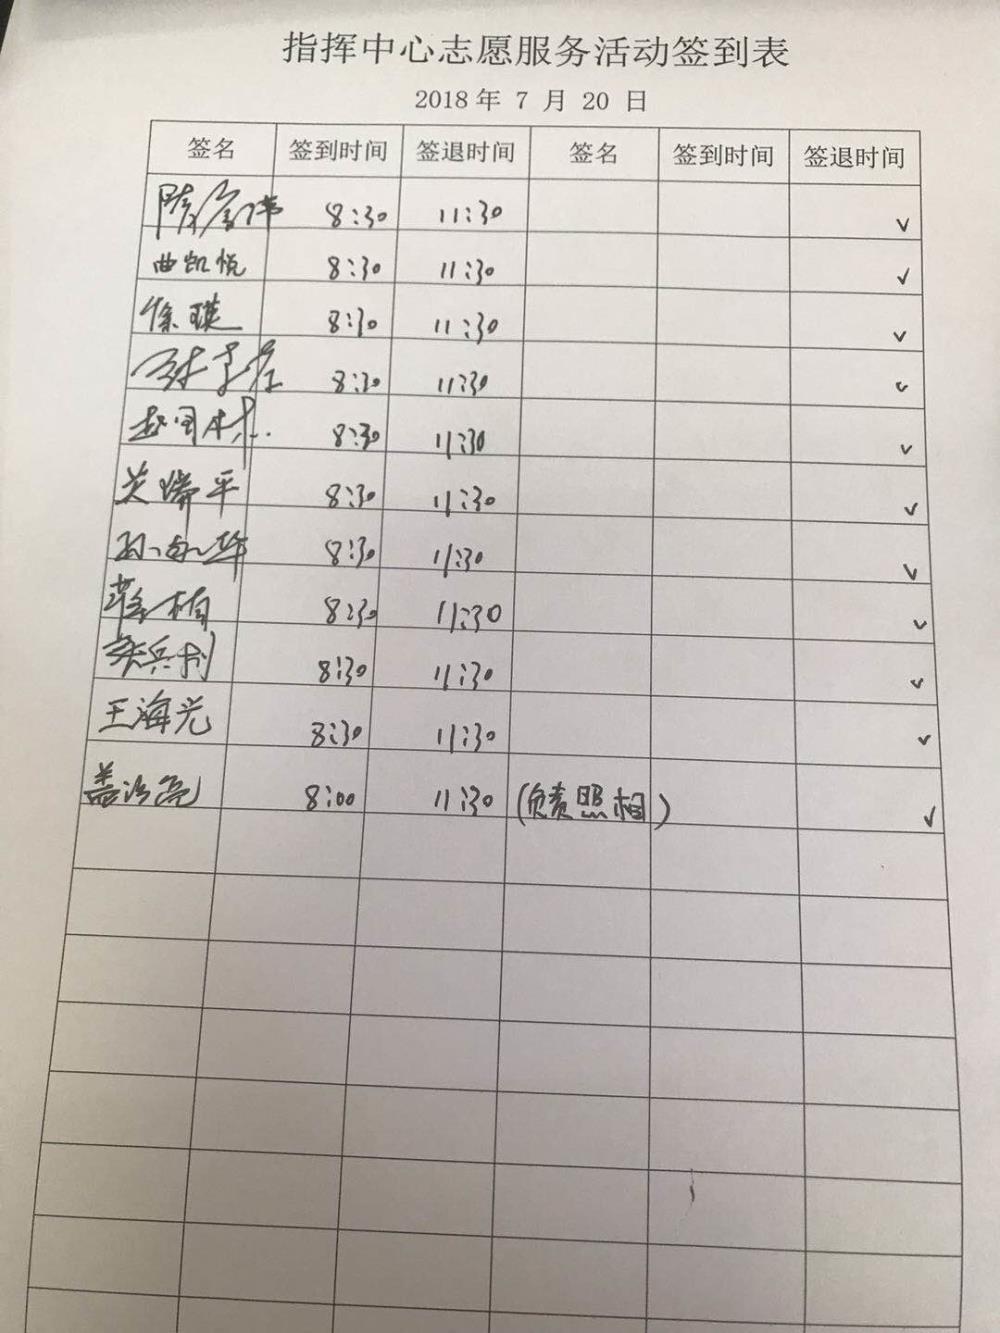 指挥中心志愿服务活动签到表
2018 年 7 月 20 日
签名 签到时间 签退时间 签名 签到时间 签退时间
8:30 11:30 ✓
曲凯悦 8:30 11:30 ✓
徐瑛 8:30 11:30 ✓
8:30 11:30 ✓
赵国林 8:30 11:30 ✓
关瑞平 8:30 11:30 ✓
孙永华 8:30 11:30 ✓
柏 8:30 11:30 ✓
兵 8:30 11:30 ✓
王海光 8:30 11:30 ✓
盖治亮 8:00 11:30 (负责照相) ✓